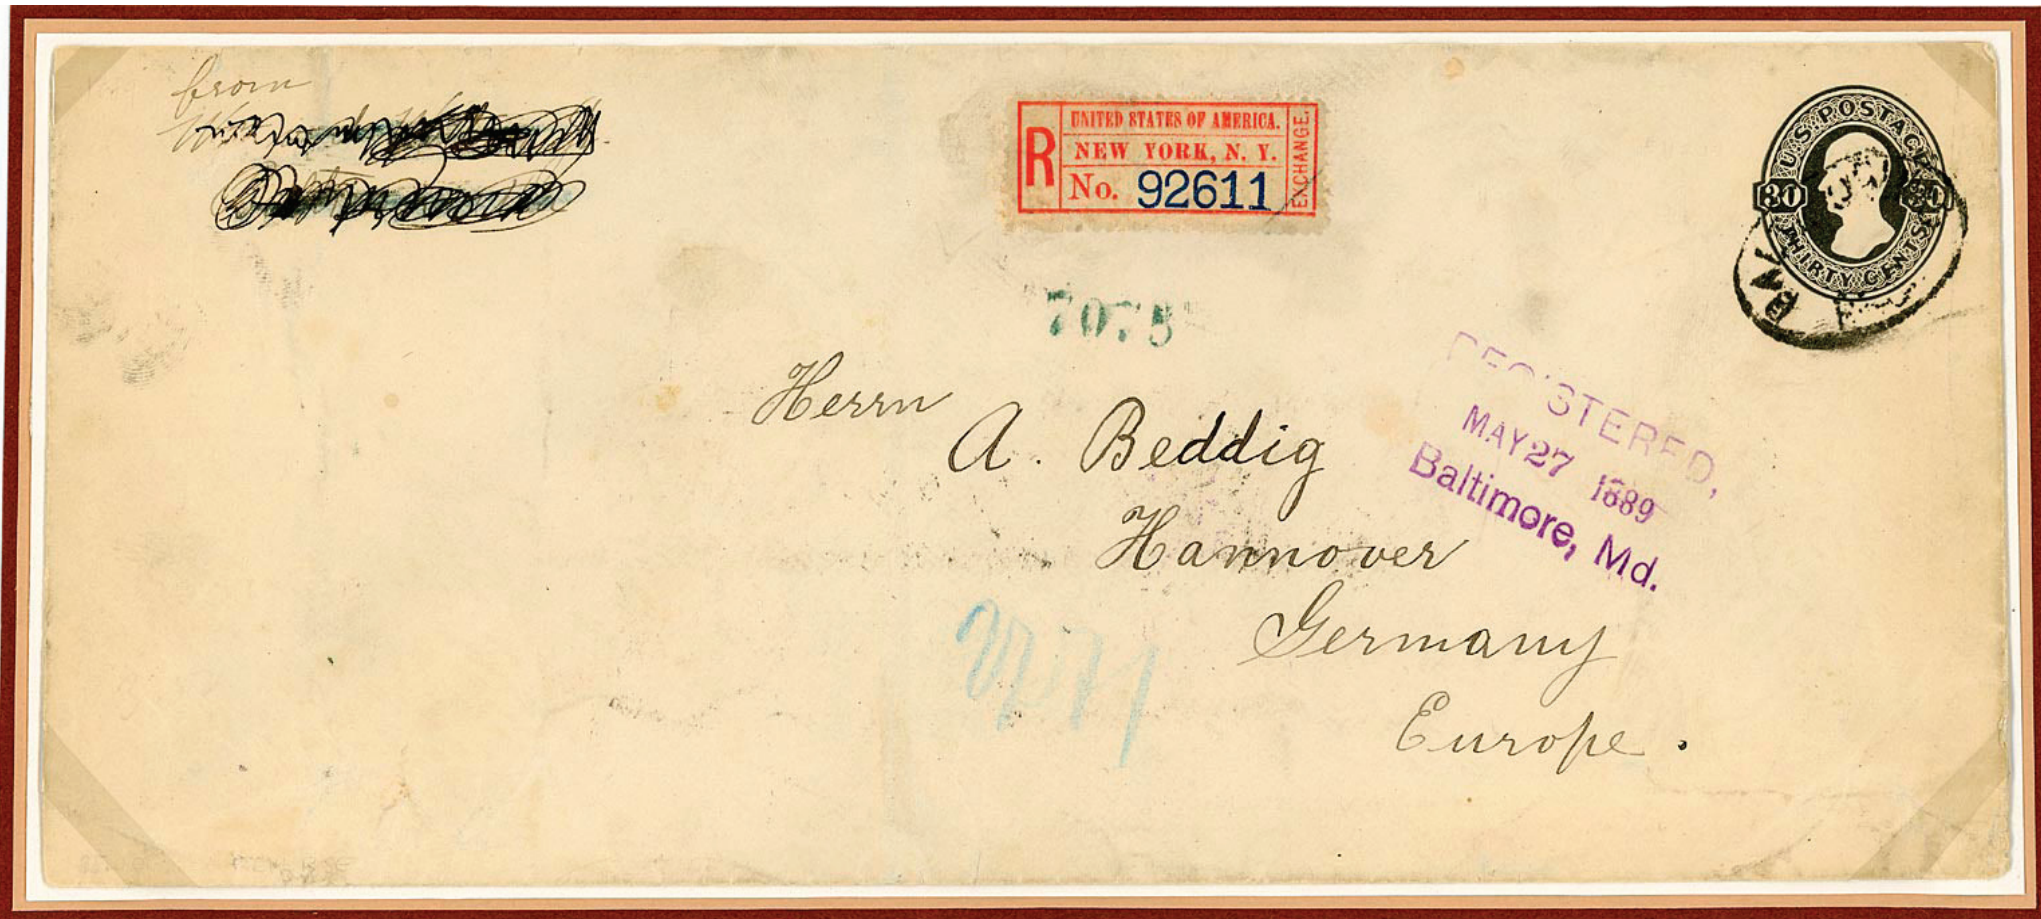 from
UNITED STATES OF AMERICA.
R
NEW YORK, N. Y.
No. 92611
EXCHANGE.
U.S. POSTAGE
30 30
THIRTY CENTS
7075
REGISTERED,
MAY 27 1889
Baltimore, Md.
Herrn
A. Beddig
Hannover
Germany
Europe.